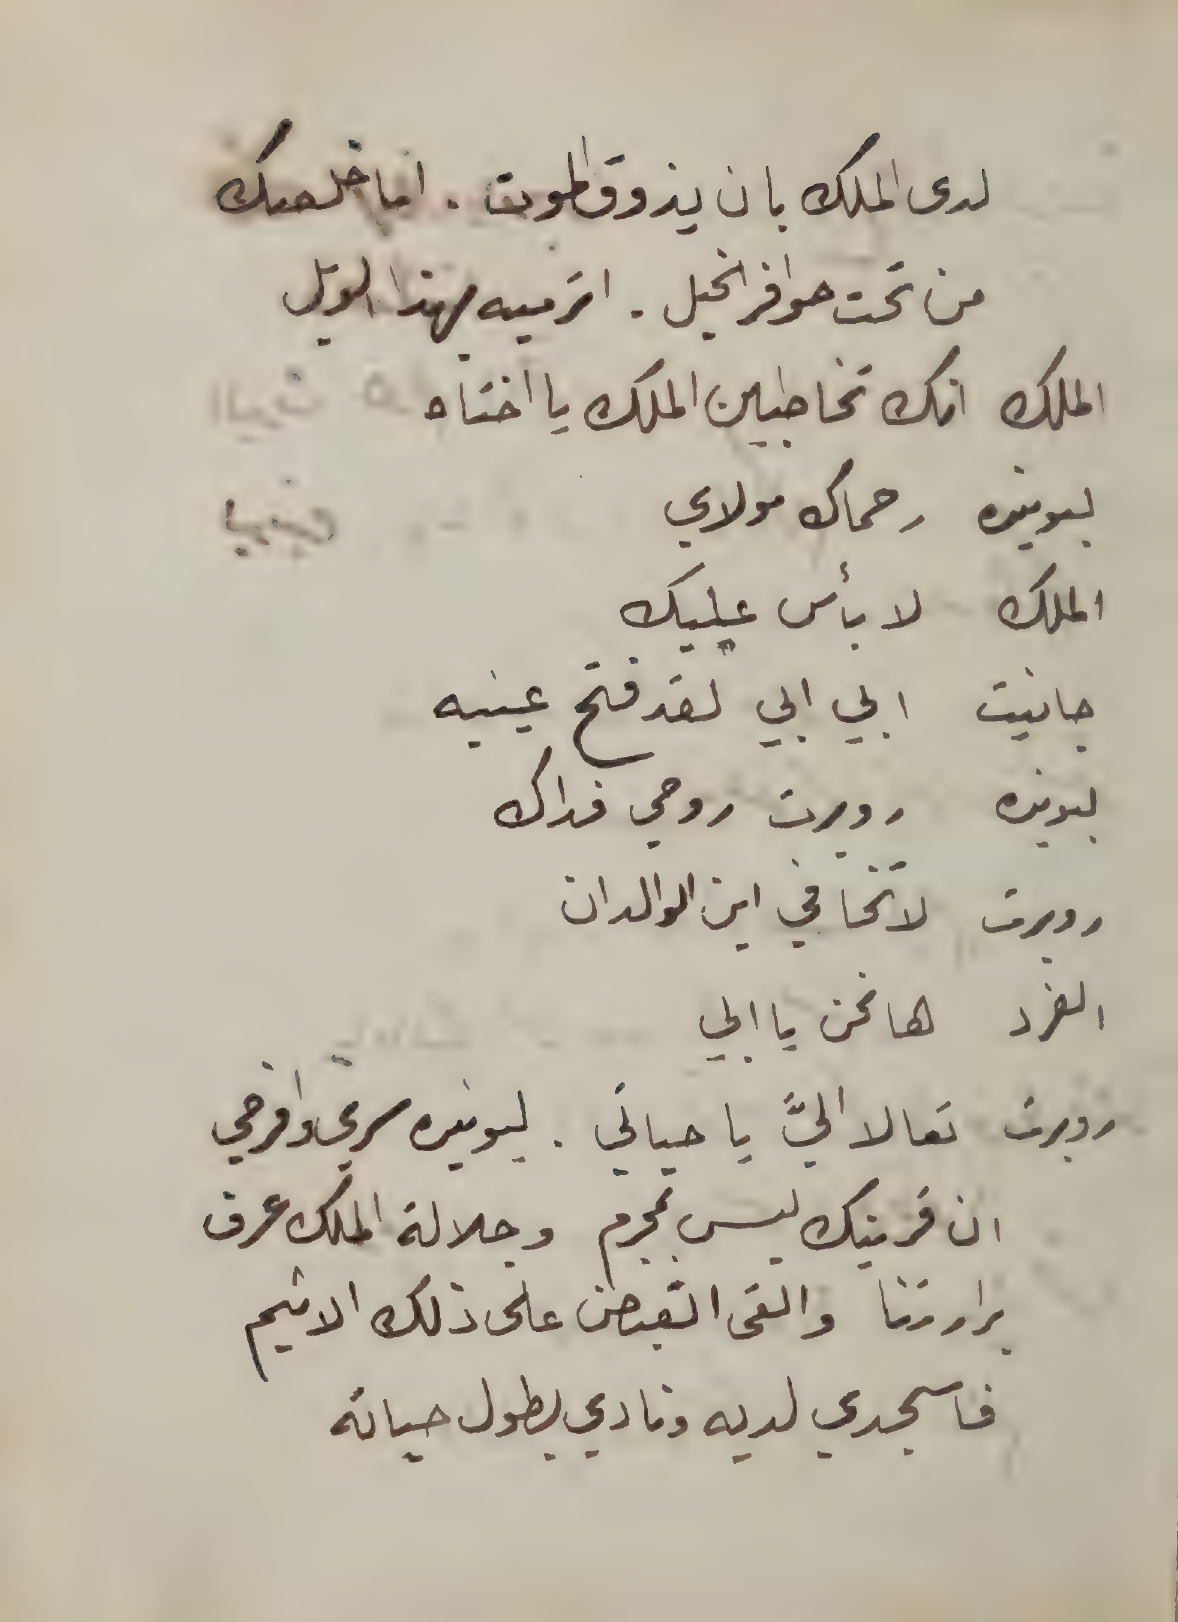 لدى الملك بان يذوق الموت . اما خلصك
من تحت حوافر الخيل . اترميه بهذا الويل
الملك انك تخاطبين الملك يا اختاه
ليونيره رحماك مولاي
الملك لا بأس عليك
جانيت ابي ابي لقد فتح عينيه
ليونيره روبرت روحي فداك
روبرت لا تخافي اين الوالدان
الفرد ها نحن يا ابي
روبرت تعالا اليَّ يا حياتي . ليونيره سري وافرحي
ان قرينك ليس بمجرم وجلالة الملك عرف
برارتنا والقى القبض على ذلك الاثيم
فاسجدي لديه ونادي بطول حياته